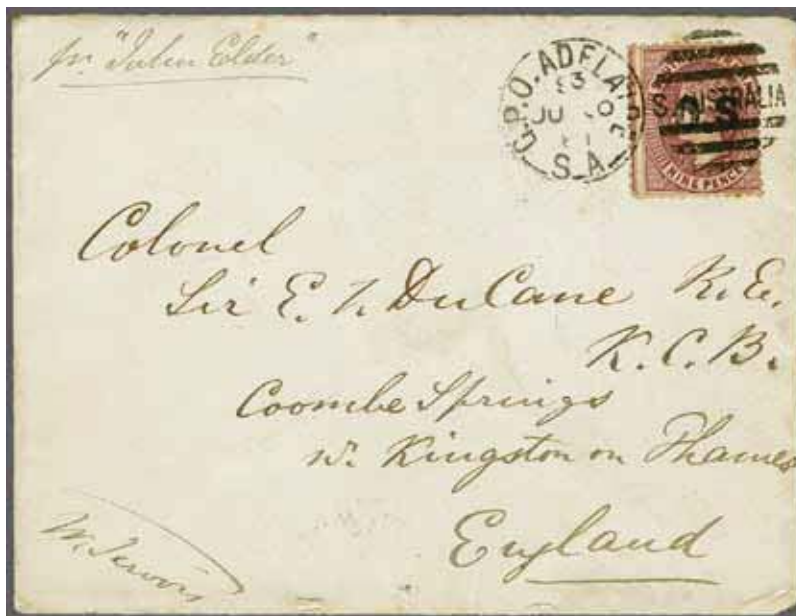 pr. "John Elder"
G.P.O. ADELAIDE
93
S.A
S. AUSTRALIA
O.S
NINE PENCE
Colonel
Sir E. F. DuCane R.E.
K.C.B.
Coombe Springs
nr. Kingston on Thames
England
W. Jervois